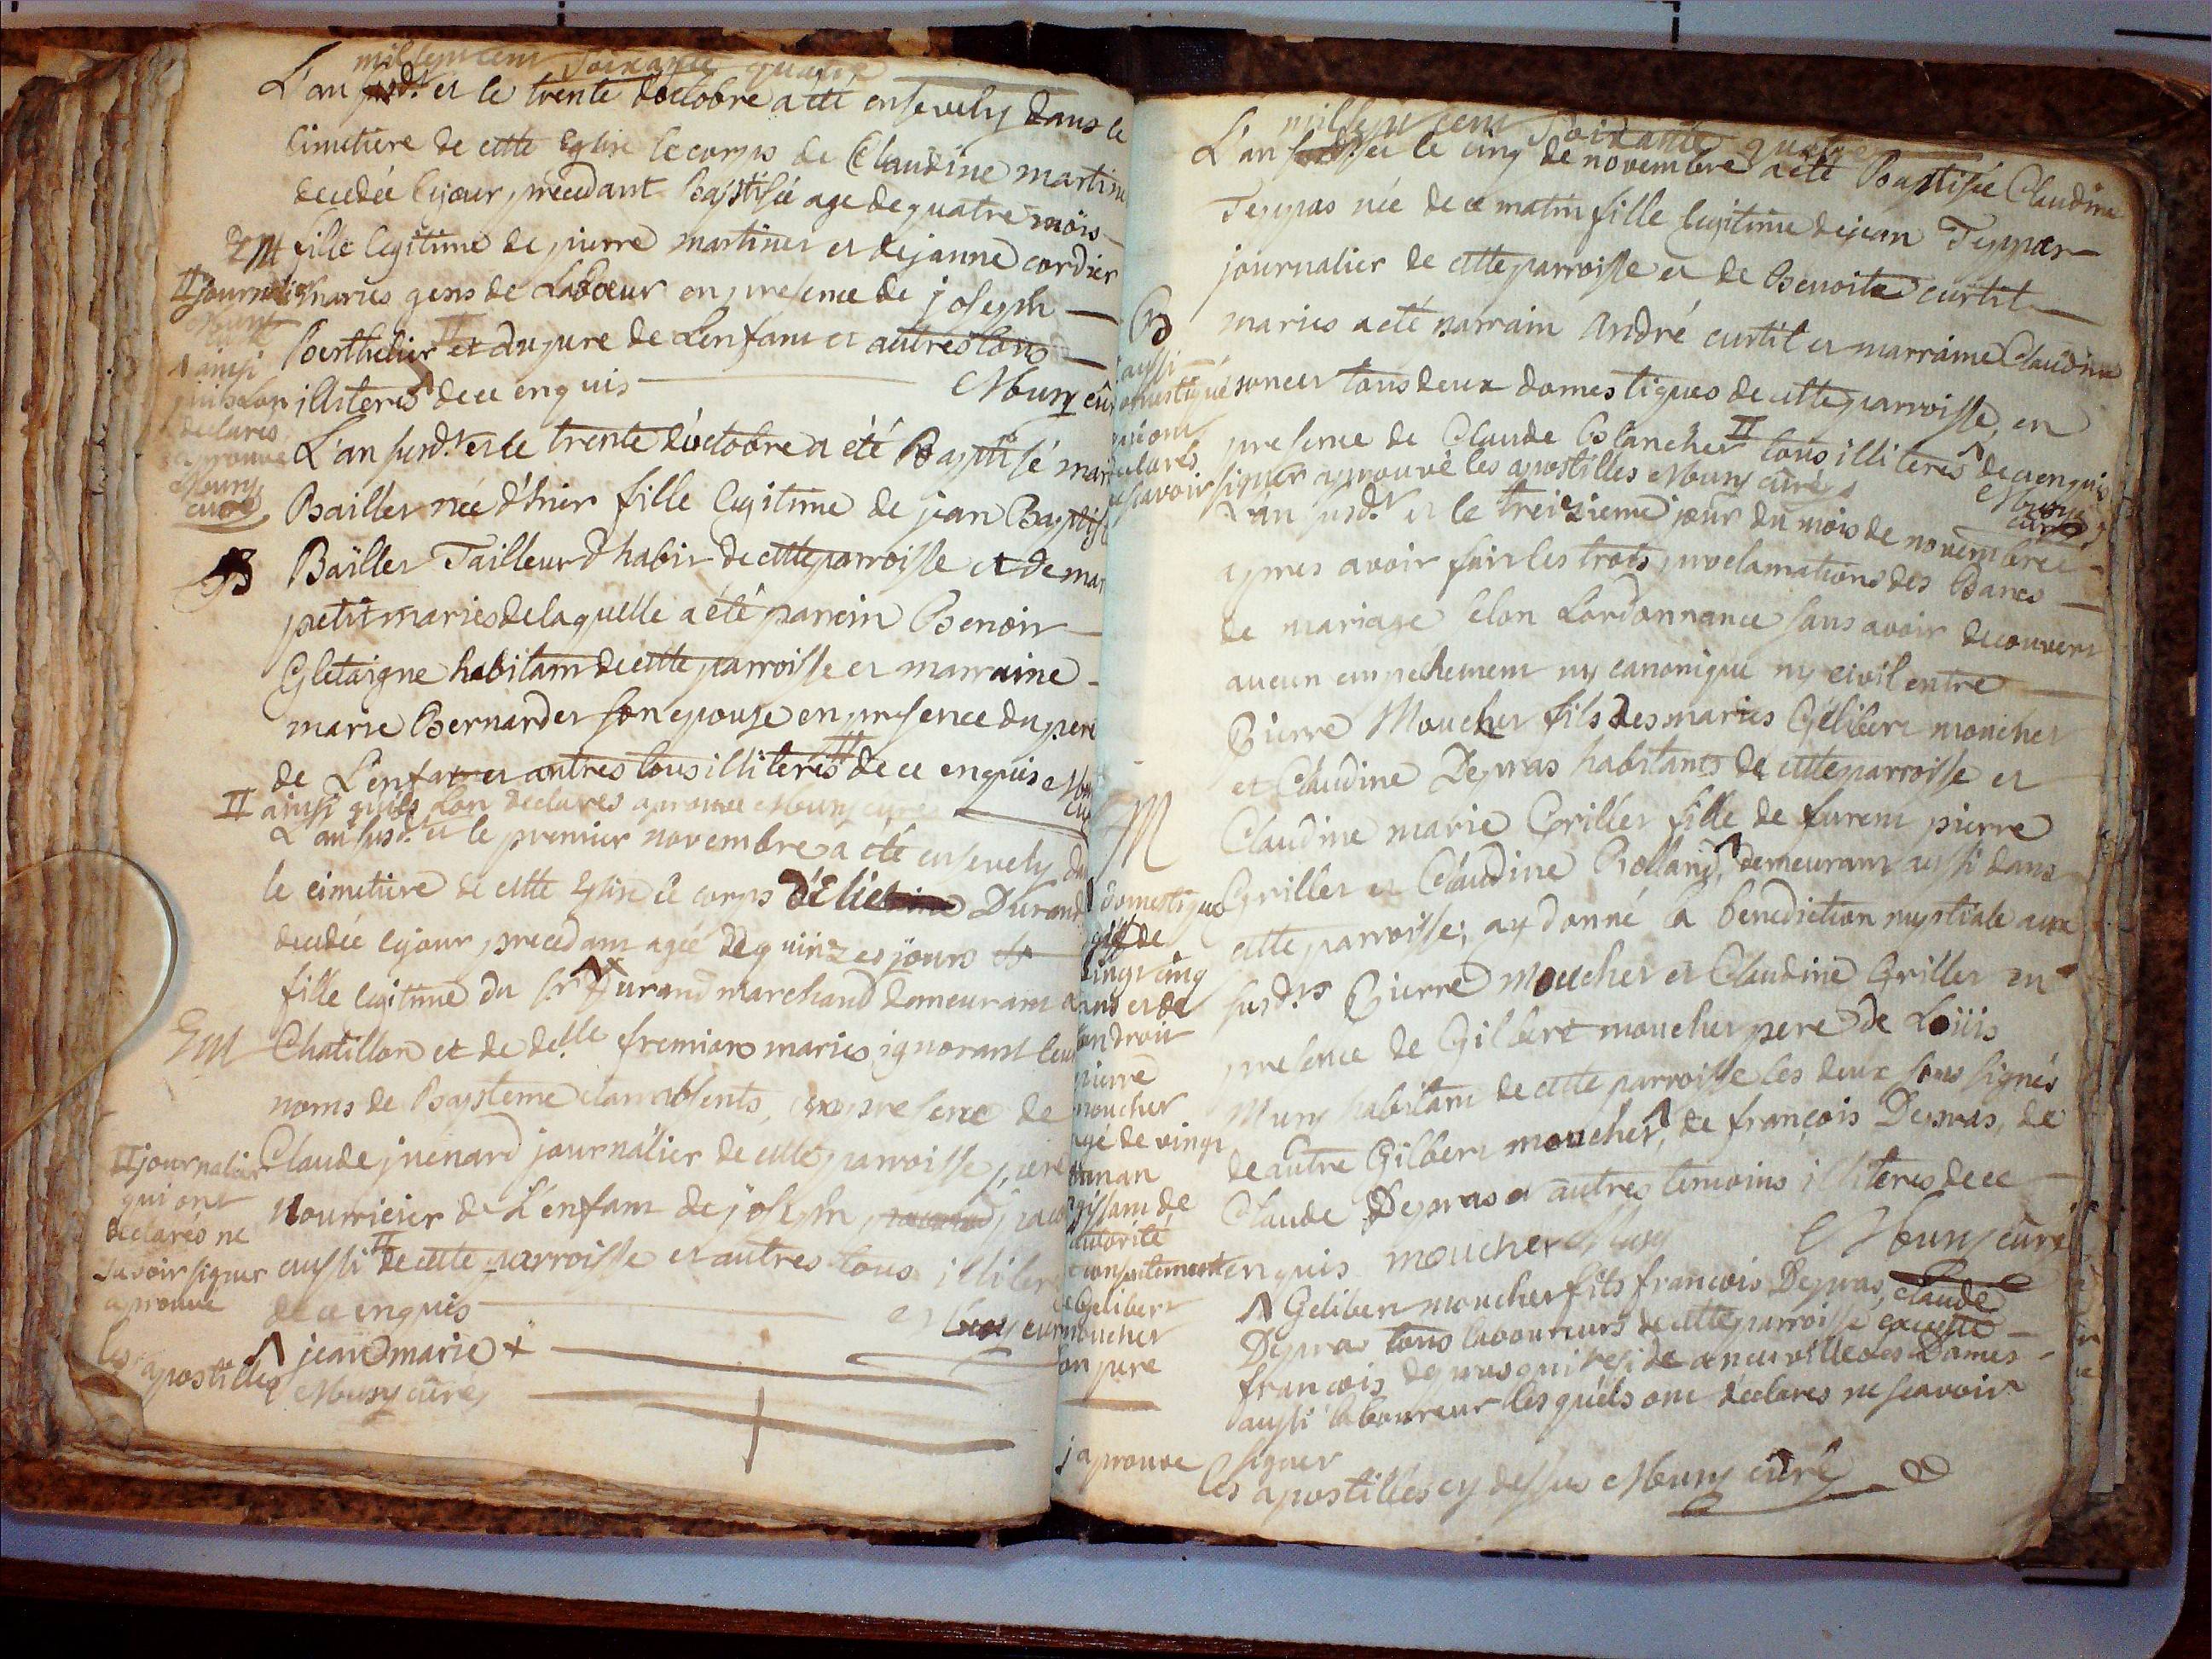 mil sept cent soixante quatre
L'an susd.t et le trente d'octobre a été ensevely dans le
cimetiere de cette Eglise le corps de Claudine martine
decedée le jour precedant baptisée age de quatre mois
fille legitime de pierre martinet et de janne cordier
II journalier mariés gens de Labœur en presence de joseph
Berthelier II et du pere de L'enfant et autres tous
illiterés de ce enquis Muny curé
Λ ainsi
quils l'on
declarés
aprouvé
Muny
curé
L'an susd.t et le trente d'octobre a été Baptisé mari
Baillet née d'hier fille legitime de jean Baptiste
B Bailler Tailleur d'habit de cette parroisse et de mar
petit mariés de laquelle a été parrein Benoit
Gletaigne habitant de cette parroisse et marraine
marie Bernardet son epouse en presence du pere
de L'enfant et autres tous illiterés II de ce enquis Muny
curé
II ainsi quils l'on declarés aprouvé Muny curé
L'an susd.t et le premier novembre a été ensevely dans
le cimetiere de cette Eglise le corps d'Elie Durand
decedée le jour precedant agée de quinze jours
fille legitime du Sr Λ x Durand marchand demeurant a
Em Chatillon et de delle fremion mariés ignorant leur
noms de Bapteme etant absents, en presence de
Claude juenard journalier de cette parroisse, pere
nourricier de L'enfant de joseph
aussi II de cette parroisse et autres tous illiterés
de ce enquis Muny curé
II journalier
qui ont
declarés ne
savoir signer
aprouvé
les
apostilles
Λ jean marie x
Muny curé
mil sept cent soixante quatre
L'an susd.t et le cinq de novembre a été Baptisée Claudine
Teppas née de ce matin fille legitime de jean Teppas
journalier de cette parroisse et de Benoite curtil
B mariés a été parrain André curtil et marraine Claudine
soncet tous deux domestiques de cette parroisse, en
presence de Claude Blanchet II tous illiterés Λ de ce enquis
signer aprouvé les apostilles Muny curé
Muny
curé
aussi
domestique
qui ont
declarés
ne scavoir
L'an susd.t et le treizieme jour du mois de novembre
apres avoir fait les trois proclamations des Bancs
de mariage selon L'ordonnance sans avoir decouvert
aucun empechement ny canonique ny civil entre
Pierre Moucher fils des mariés Gelibert moucher
et Claudine Depras habitants de cette parroisse et
M Claudine marie Griller fille de furent pierre
Griller et Claudine Rolland, Λ demeurant aussi dans
cette parroisse; ay donné la benediction nuptiale aux
susd.ts Pierre moucher et Claudine Griller en
presence de Gilbert moucher pere de Loüis
Muny habitant de cette parroisse les deux sous signés
de autre Gilbert moucher, Λ de françois Depras, de
Claude Depras et autres temoins illiterés de ce
enquis moucher Muny Muny curé
Λ domestique
agé de
vingt cinq
ans et de
son droit
pierre
moucher
agé de vingt
un an
agissant de
autorité
consentement
de Gelibert
moucher
son pere
Λ Gelibert moucher fils françois Depras, Claude
Depras tous laboureurs de cette parroisse excepté
françois depras qui reside a neuville les Dames
aussi laboureur lesquels ont declarés ne scavoir
signer
j aprouve les apostilles cy dessus Muny curé